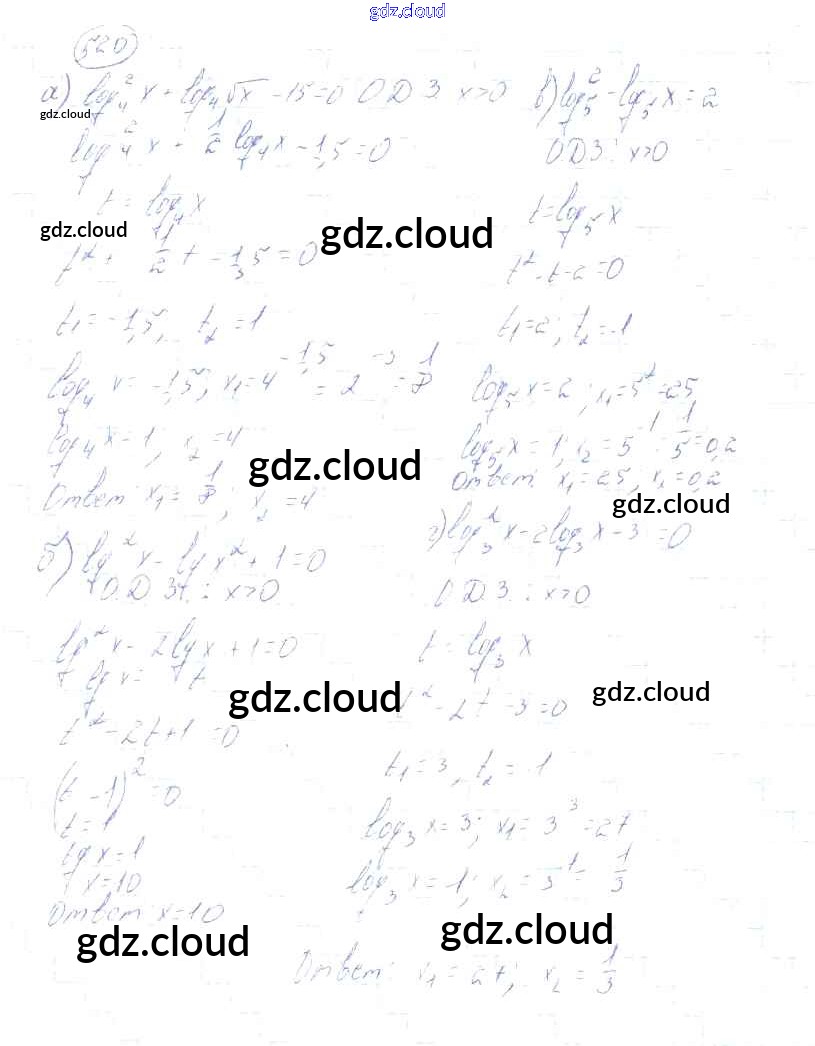 gdz.cloud
520
а) log₄² x + log₄ √x - 1,5 = 0 О.Д.З. x>0
gdz.cloud
log₄² x + 1/2 log₄ x - 1,5 = 0
t = log₄ x
gdz.cloud
gdz.cloud
t² + 1/2 t - 1,5 = 0
t₁ = -1,5, t₂ = 1
log₄ x = -1,5; x₁ = 4^-1,5 = 2^-3 = 1/8
log₄ x = 1; x₂ = 4
gdz.cloud
Ответ: x₁ = 1/8; x₂ = 4
б) lg² x - lg x² + 1 = 0
О.Д.З. : x>0
lg² x - 2 lg x + 1 = 0
lg x = t
gdz.cloud
t² - 2t + 1 = 0
(t - 1)² = 0
t = 1
lg x = 1
x = 10
Ответ: x = 10
gdz.cloud
в) log₅² - log₅ x = 2
О.Д.З: x>0
t = log₅ x
t² - t - 2 = 0
t₁ = 2; t₂ = -1
log₅ x = 2; x₁ = 5² = 25
log₅ x = 1; x₂ = 5^-1 = 1/5 = 0,2
Ответ: x₁ = 25, x₂ = 0,2
gdz.cloud
г) log₃² x - 2 log₃ x - 3 = 0
О.Д.З. : x>0
t = log₃ x
gdz.cloud
t² - 2t - 3 = 0
t₁ = 3, t₂ = -1
log₃ x = 3; x₁ = 3³ = 27
log₃ x = -1; x₂ = 3^-1 = 1/3
gdz.cloud
Ответ: x₁ = 27; x₂ = 1/3